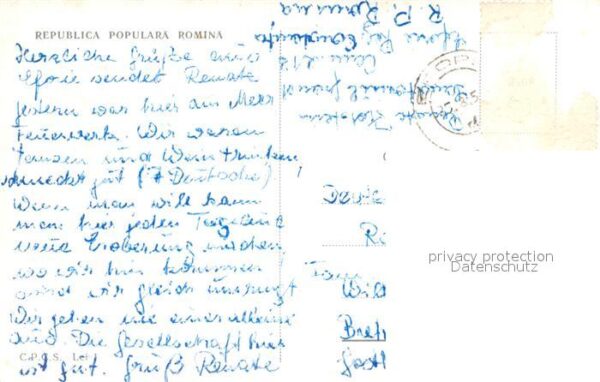 REPUBLICA POPULARA ROMINA
Herzliche Grüße aus
Eforie sendet Renate
gestern war hier am Meer
Feuerwerk. Wir waren
tanzen und Wein trinken,
schmeckt gut (7 Deutsche)
Wenn man will kann
man hier jeden Tag eine
neue Eroberung machen
wo wir hin kommen
sind wir gleich umringt
Wir gehen nie einer alleine
aus. Die Gesellschaft hier
ist gut. Gruß Renate
C.P.C.S. Lei
R. P. Romina
Eforie Reg. Constanța
Renate
Fam
Wil
Bref
privacy protection
Datenschutz